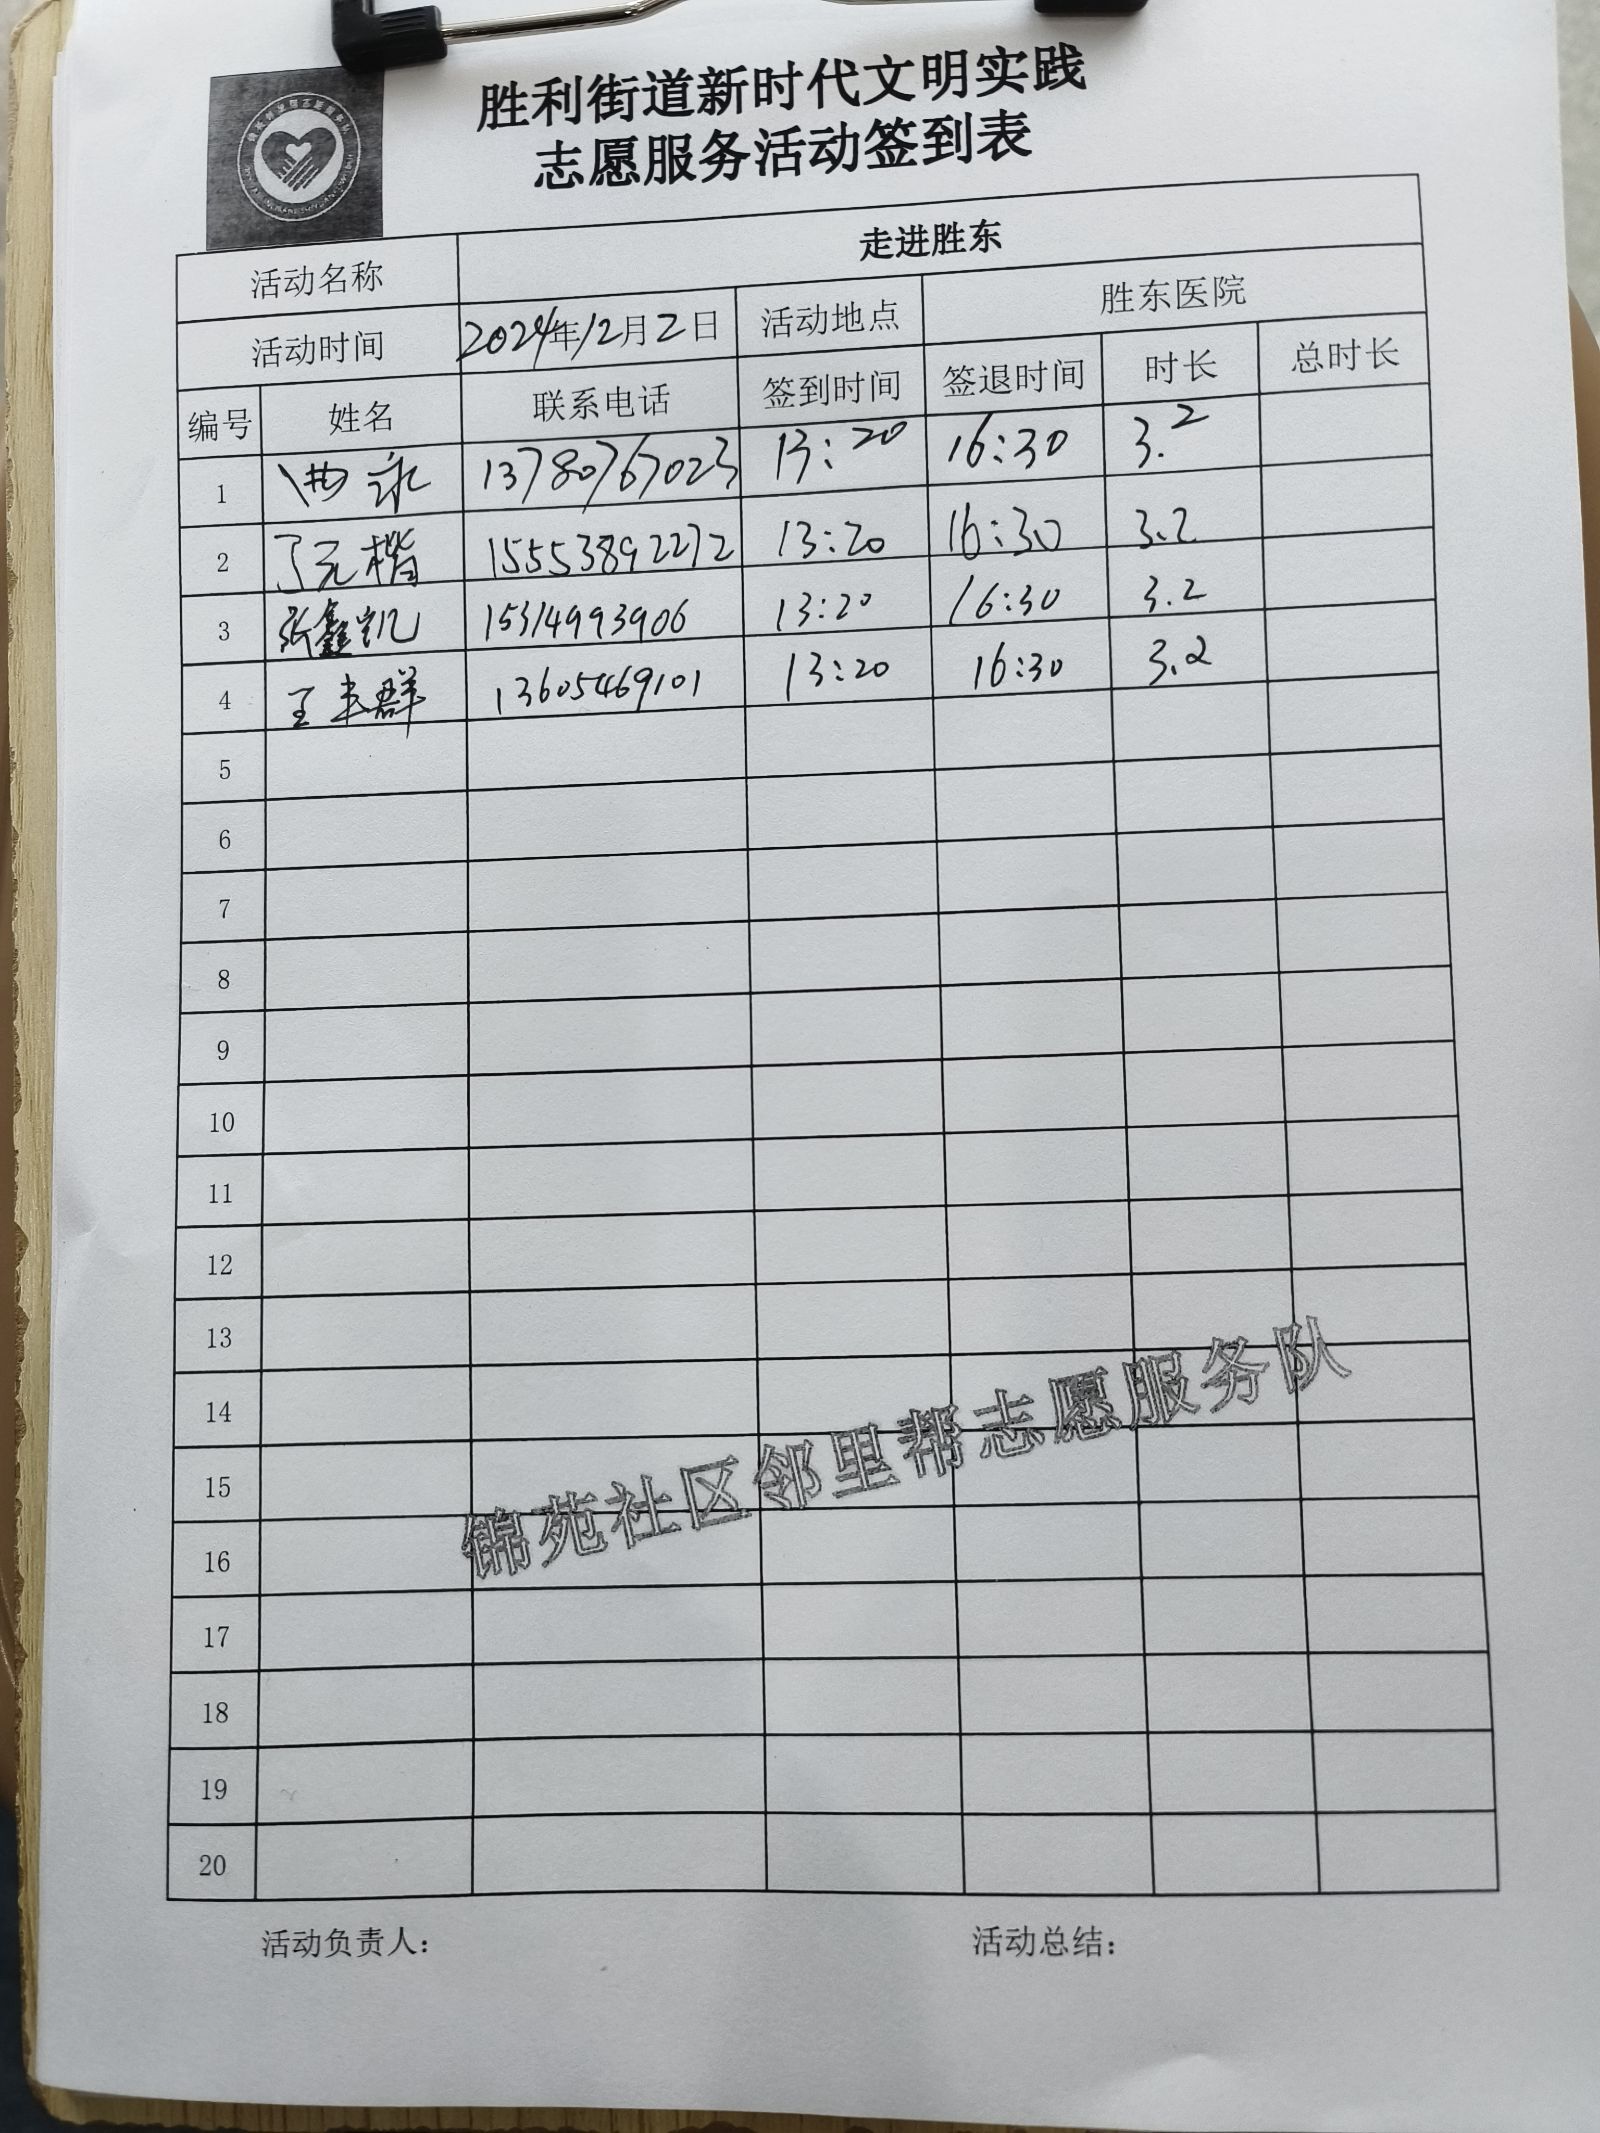 胜利街道新时代文明实践
志愿服务活动签到表
活动名称 走进胜东
活动时间 2024年12月2日 活动地点 胜东医院
编号 姓名 联系电话 签到时间 签退时间 时长 总时长
1 13780767023 13:20 16:30 3.2
2 丁元楷 15553892272 13:20 16:30 3.2
3 张鑫凯 15314993906 13:20 16:30 3.2
4 王群 13605469101 13:20 16:30 3.2
5
6
7
8
9
10
11
12
13
14
15
16
17
18
19
20
锦苑社区邻里帮志愿服务队
活动负责人： 活动总结：